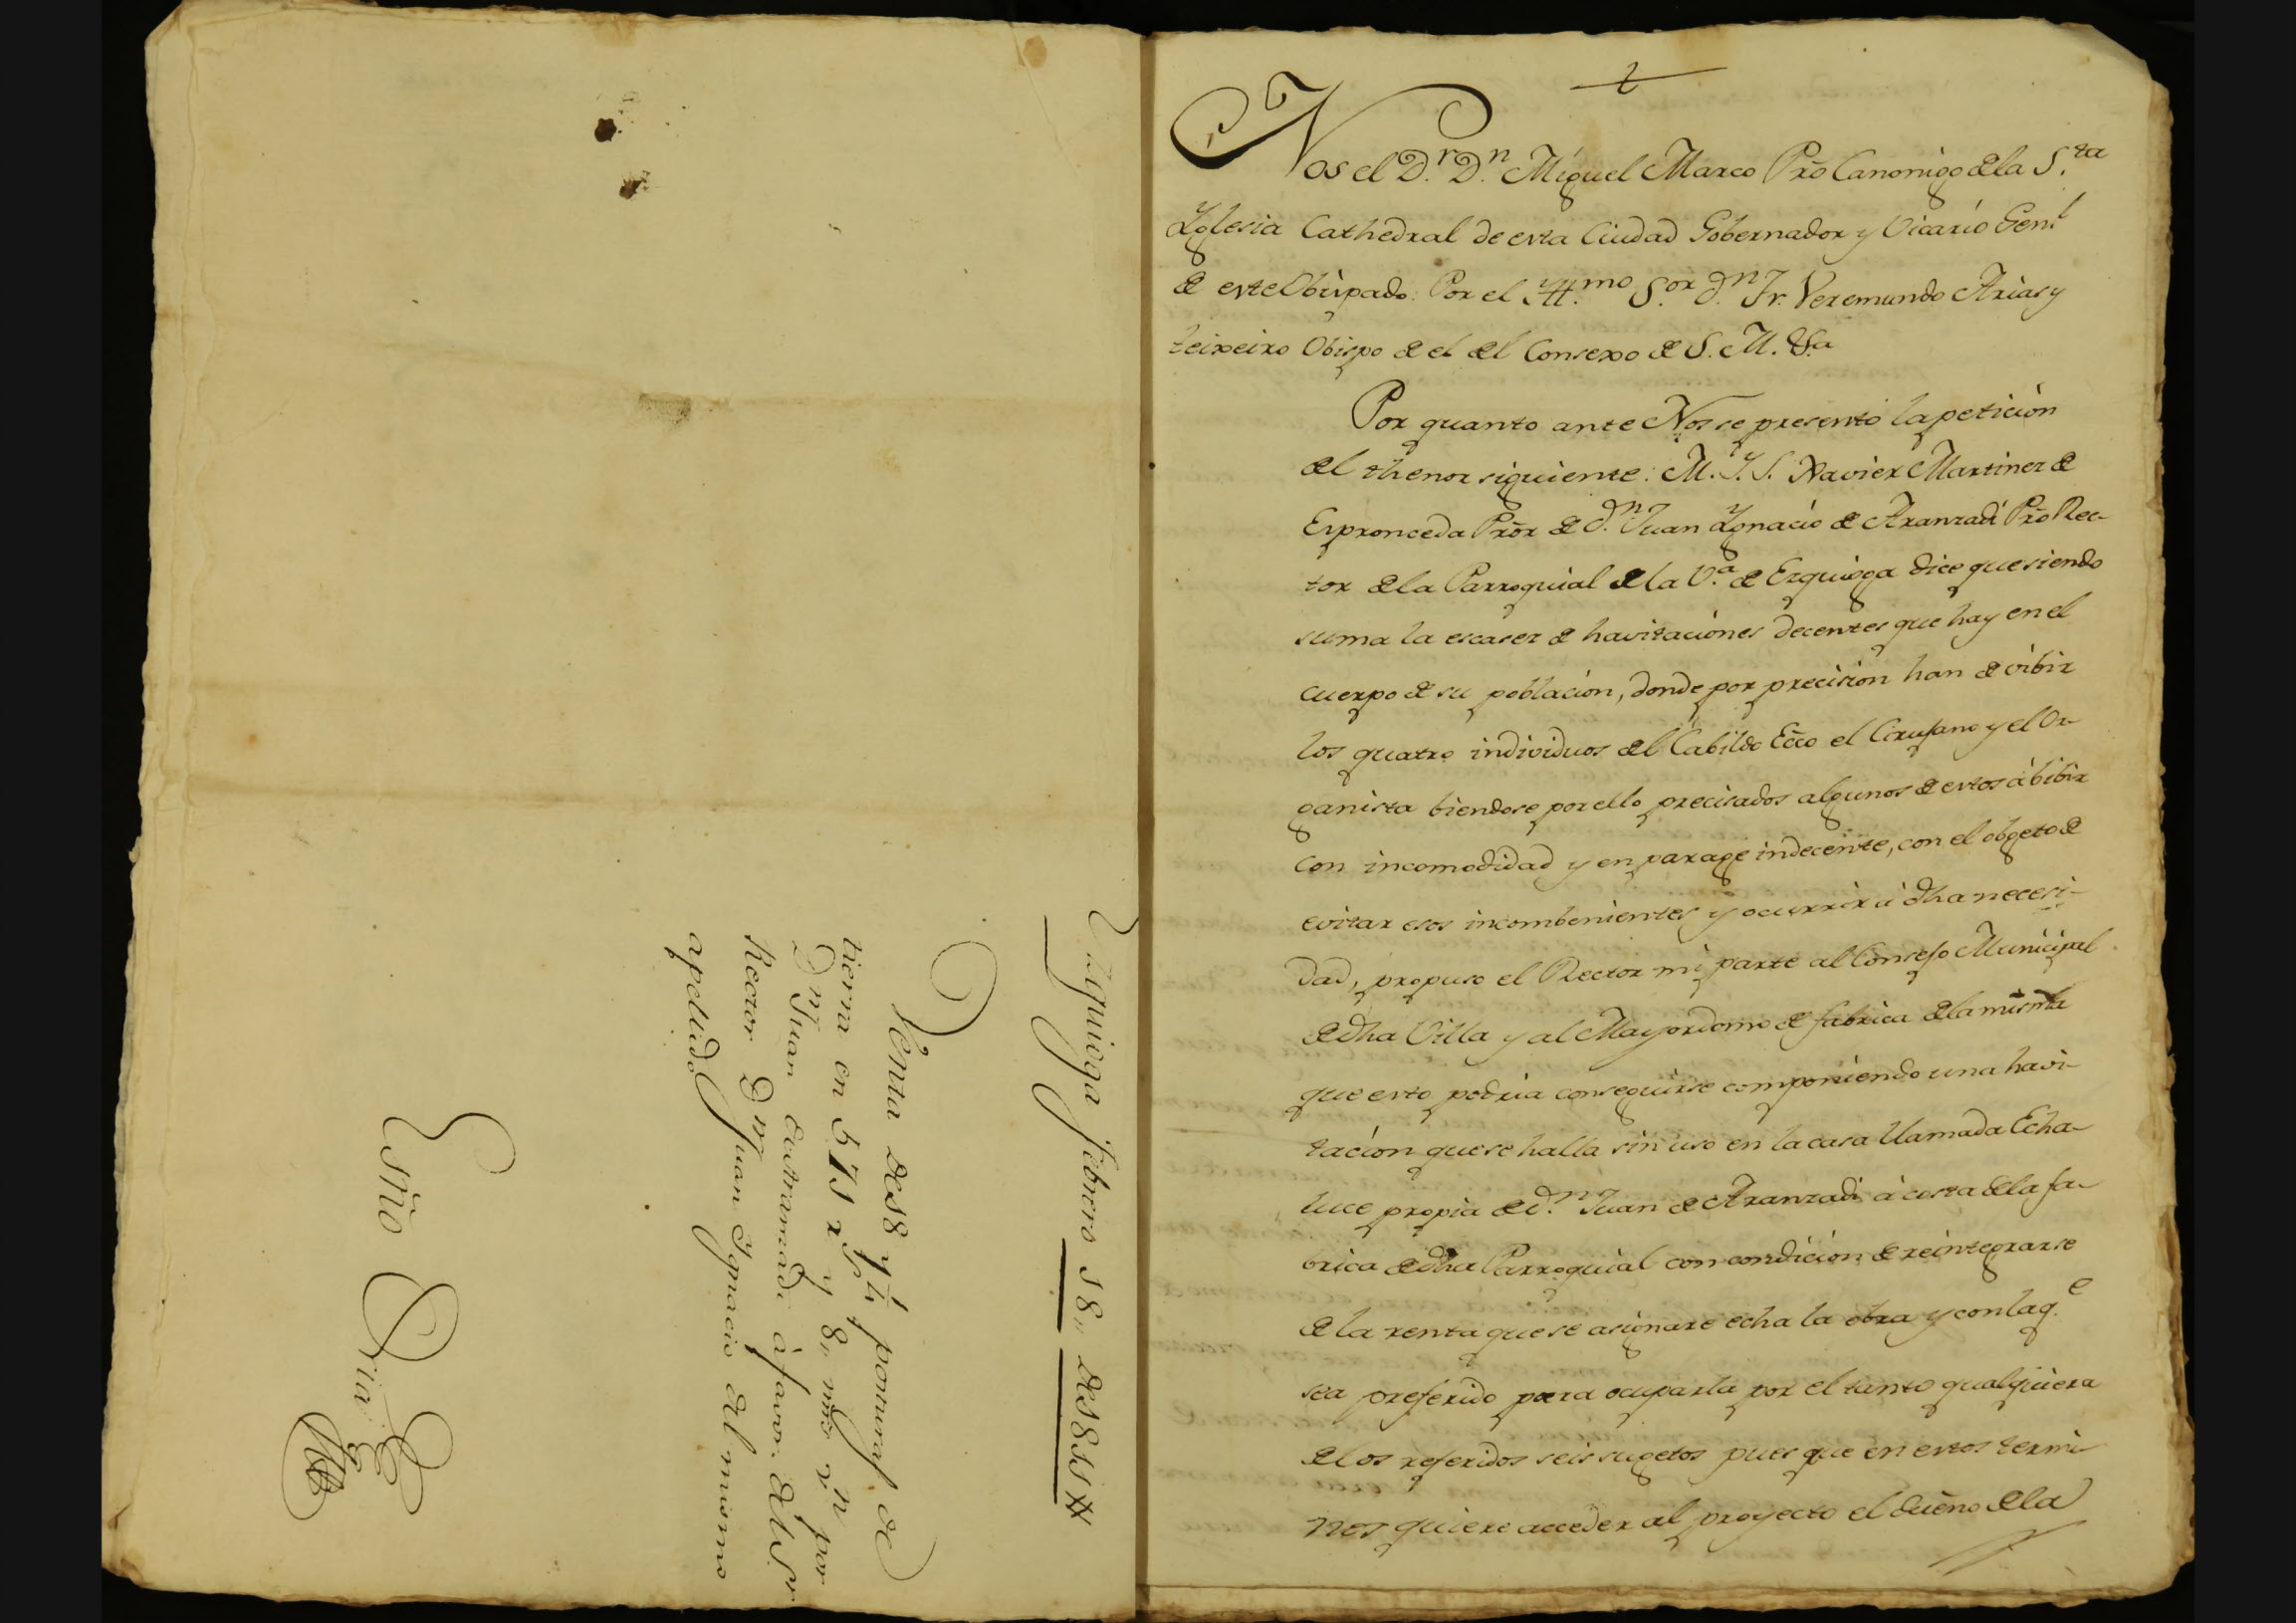 Ezquioga Febrero 18,, de 1815
Venta de 18 y ¼ posturas de
tierra en 515 r.s y 8,, mrs v.n por
D.n Juan de Aranzadi à favor del S.r
Rector D.n Juan Ignacio del mismo
apellido
Esño Oria
Nos el D.r D.n Miguel Marco Pro Canonigo de la S.ta
Yglesia Cathedral de esta Ciudad Gobernador y Vicario Gen.l
de este Obispado. Por el Ill.mo S.or d.n Fr. Veremundo Arias y
teixeiro Obispo de el del Consexo de S. M. &.a
Por quanto ante Nos se presentò la peticiòn
del thenor siguiente: M. Y. S. Xavier Martinez de
Espronceda Pror de d.n Juan Ygnacio de Aranzadi Pro Rec-
tor de la Parroquial de la V.a de Ezquioga dice que siendo
suma la escasez de havitaciones decentes que hay en el
cuerpo de su poblacion, donde por precision han de vibir
los quatro individuos del Cabildo Ecco el Cirujano y el Or-
ganista biendose por ello precisados algunos de estos à bibir
con incomodidad y en parage indecente, con el obgeto de
evitar esos incombenientes y ocurrir à dha necesi-
dad, propuso el Rector mi parte al Consejo Municipal
de dha Villa y al Mayordomo de fabrica de la misma
que esto podria conseguirse componiendo una havi-
tacion que se halla sin uso en la casa llamada Echa-
luce propia de d.n Juan de Aranzadi à costa de la fa-
brica de dha Parroquial con condicion de reintegrarse
de la renta que se asignare echa la obra y con la q.e
sea preferido para ocuparla por el tanto qualquiera
de los referidos seis sugetos pues que en estos termi-
nos quiere acceder al proyecto el dueño de la